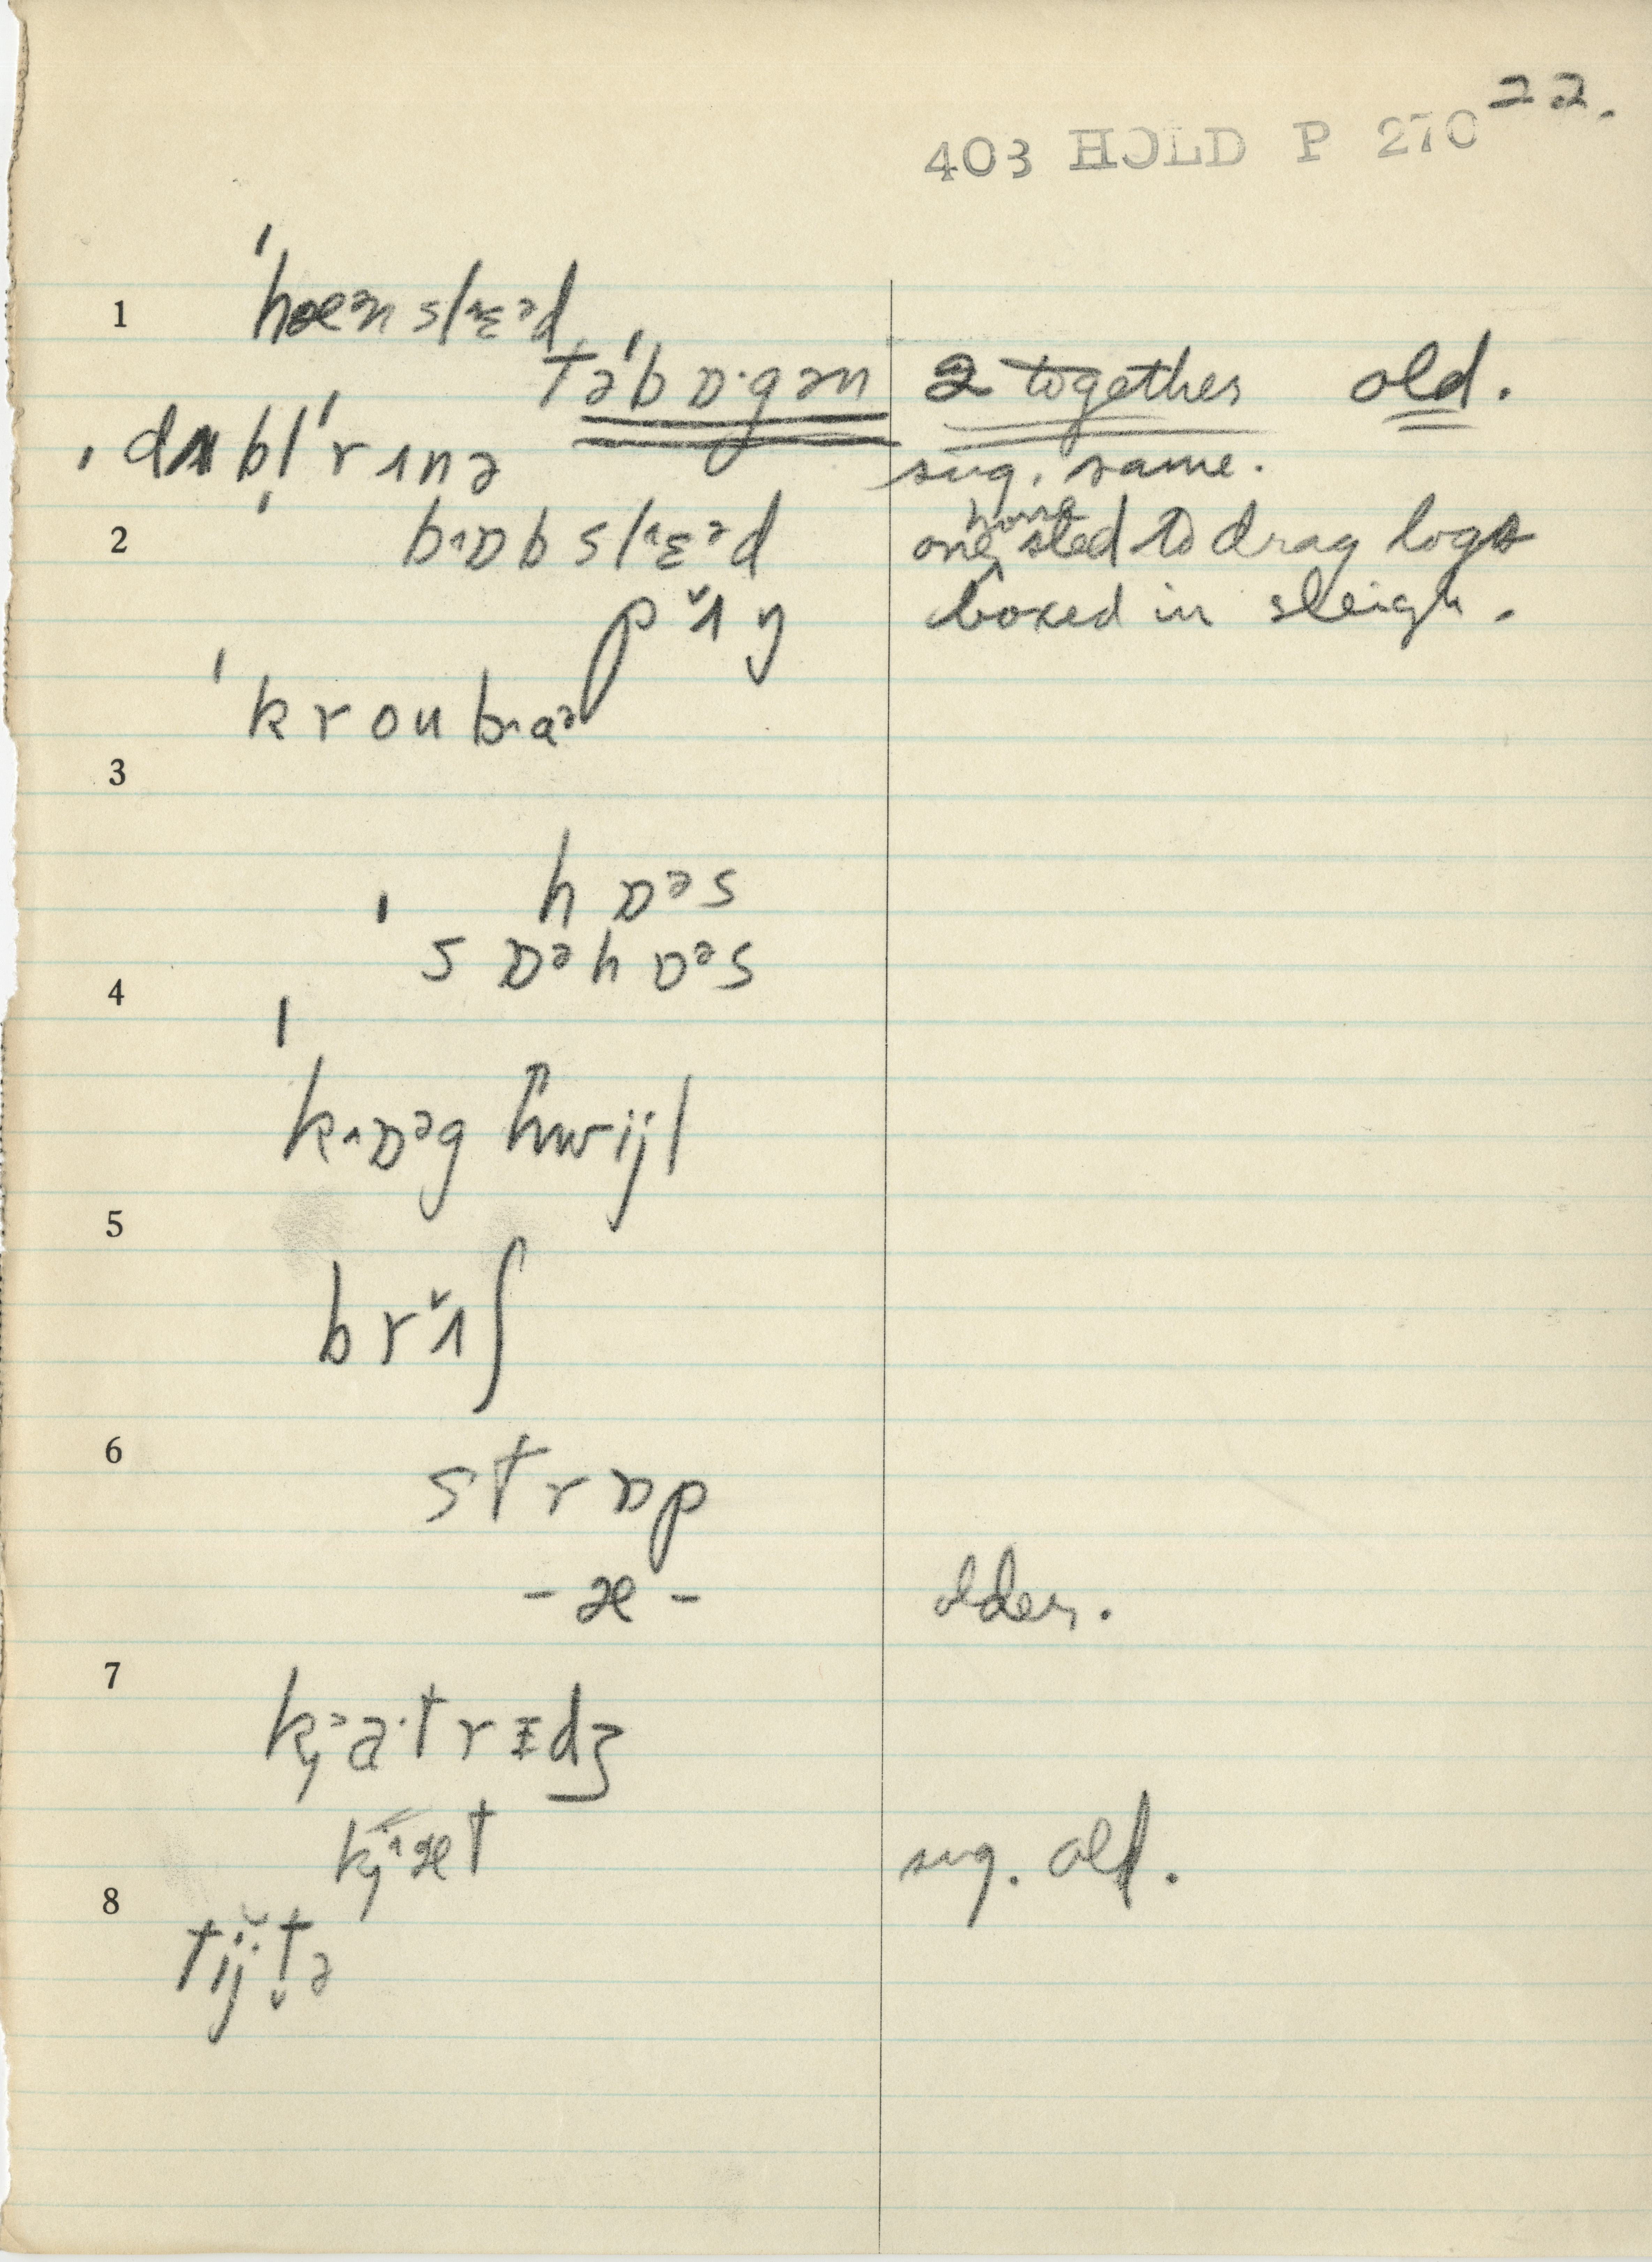 22.
403 HOLD P 270
1 ˈhæᵊn slᶺɛᵊd
təˈbɒ·gən 2 together old.
ˌdʌbl̩ˈrʌnə sug. same.
2 ˈbᶺɒb slᶺɛᵊd one horse sled to drag logs
pʌ̌ŋ boxed in sleigh.
ˈkroubᶺaᵊ
3
hɒᵊs
ˈsɒᵊhɒᵊs
4
ˈkᶺɒᵊg hwijl
5
brʌ̌ʃ
6
strɒp
-æ- older.
7
k̡ᵊa·trɪdʒ
k̡ᶺæt sug. old.
8
tij̆t̬ə